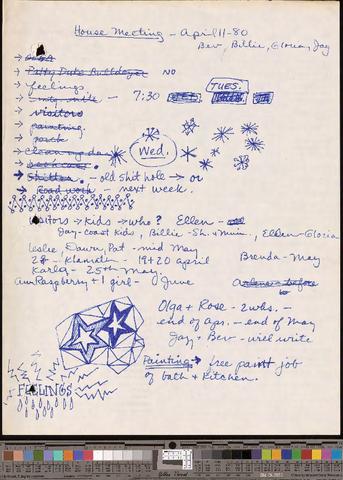 House Meeting - April 11-80
Bev, Billie, Gloria, Jay
→ Patty Duke Bulldozer NO
→ feelings TUES.
→ - 7:30
→ visitors
→ painting
→ 
→ cleaning day Wed.
→ 
→ Shitter. - old shit hole → or
→ Road work - next week.
Visitors → kids → who? Ellen -
Jay-coast kids, Billie - Sh. & Mum., Ellen-Gloria
Leslie, Dawn, Pat - mid May
Brenda - May
28 - Klamath - 19+20 april
Karla - 25th May.
Ann Raspberry + 1 girl - June
Arlene - before
Olga + Rose - 2 wks. -
end of apr. - end of May
Jay + Bev - will write
Painting → free paint job
of bath + Kitchen.
FEELINGS